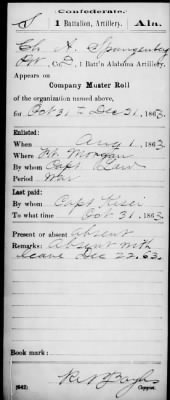 Confederate.
S 1 Battalion, Artillery. Ala.
Ch. A. Spangenberg
Pvt, Co. D, 1 Batt'n Alabama Artillery.
Appears on
Company Muster Roll
of the organization named above,
for Oct 31 to Dec 31, 1863.
Enlisted:
When Aug 1, 1863.
Where Ft. Morgan
By whom Capt
Period War
Last paid:
By whom Capt
To what time Oct. 31, 1863
Present or absent Absent
Remarks: Absent with
leave Dec 22. 63.
Book mark:
(642) Copyist.